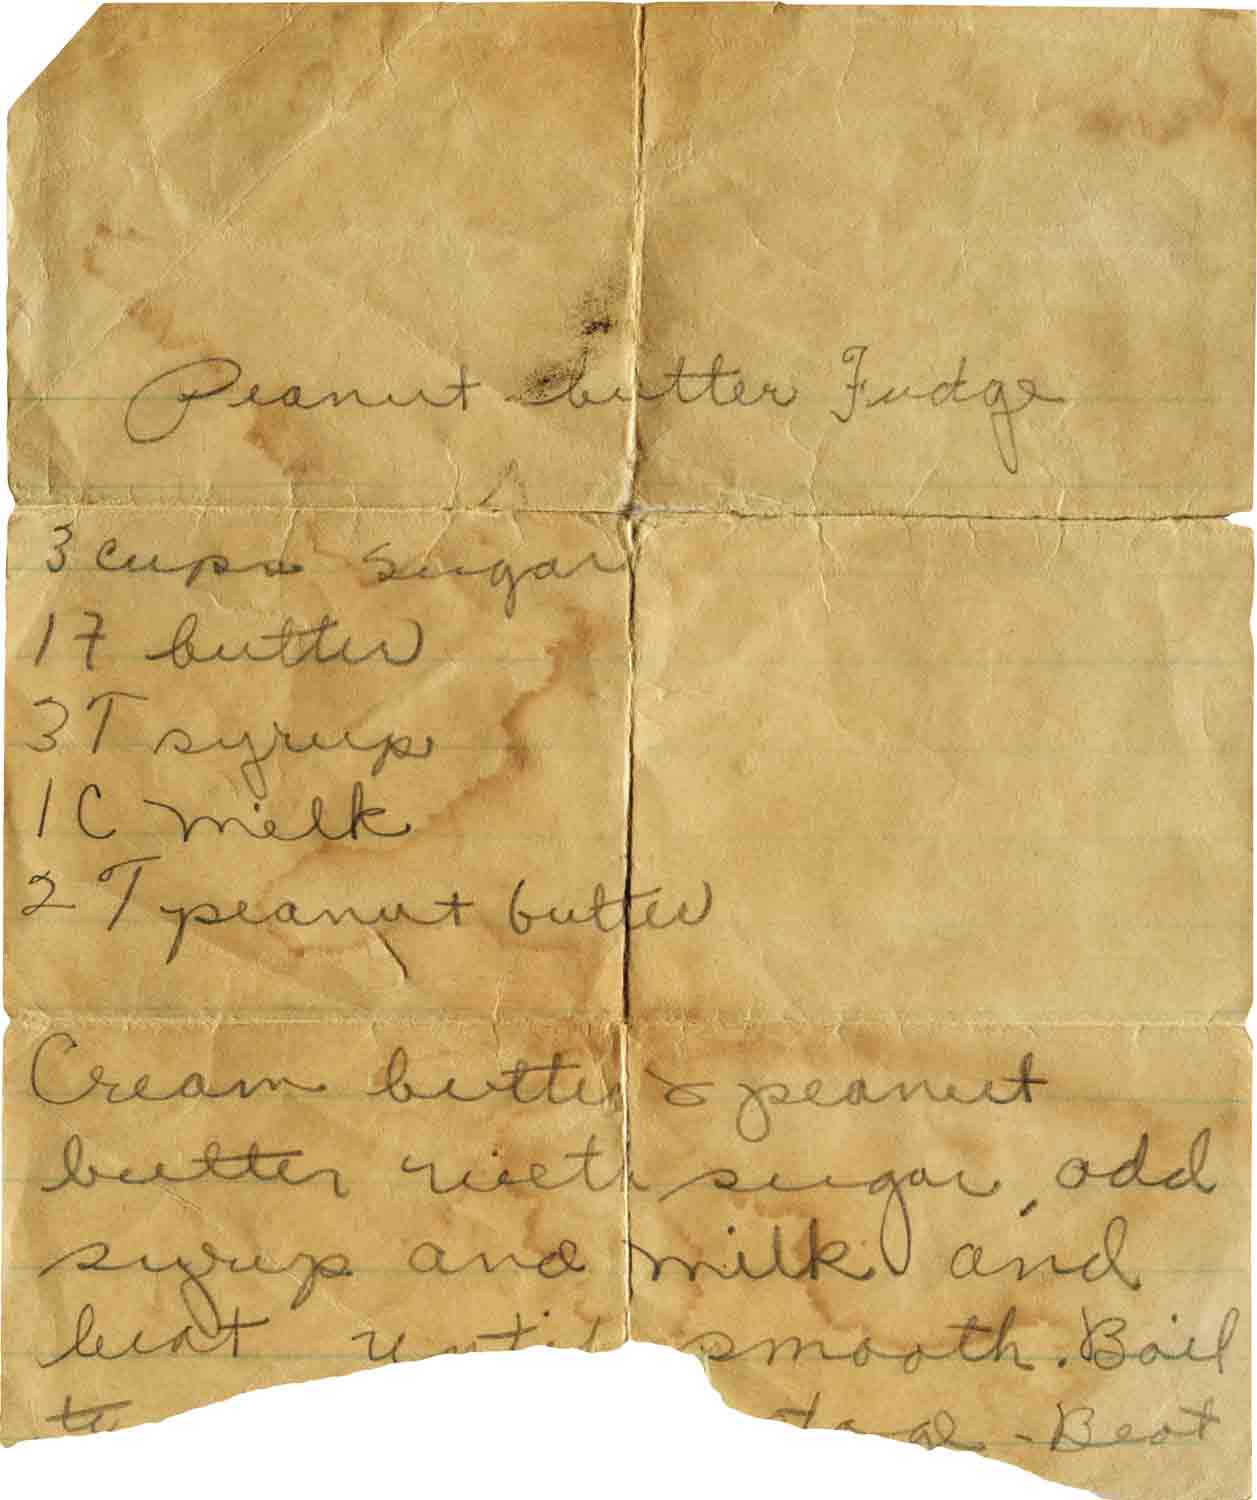 Peanut butter Fudge
3 cups sugar
1 T butter
3 T syrup
1 C milk
2 T peanut butter
Cream butter & peanut
butter with sugar, add
syrup and milk and
beat until smooth. Boil
- Beat